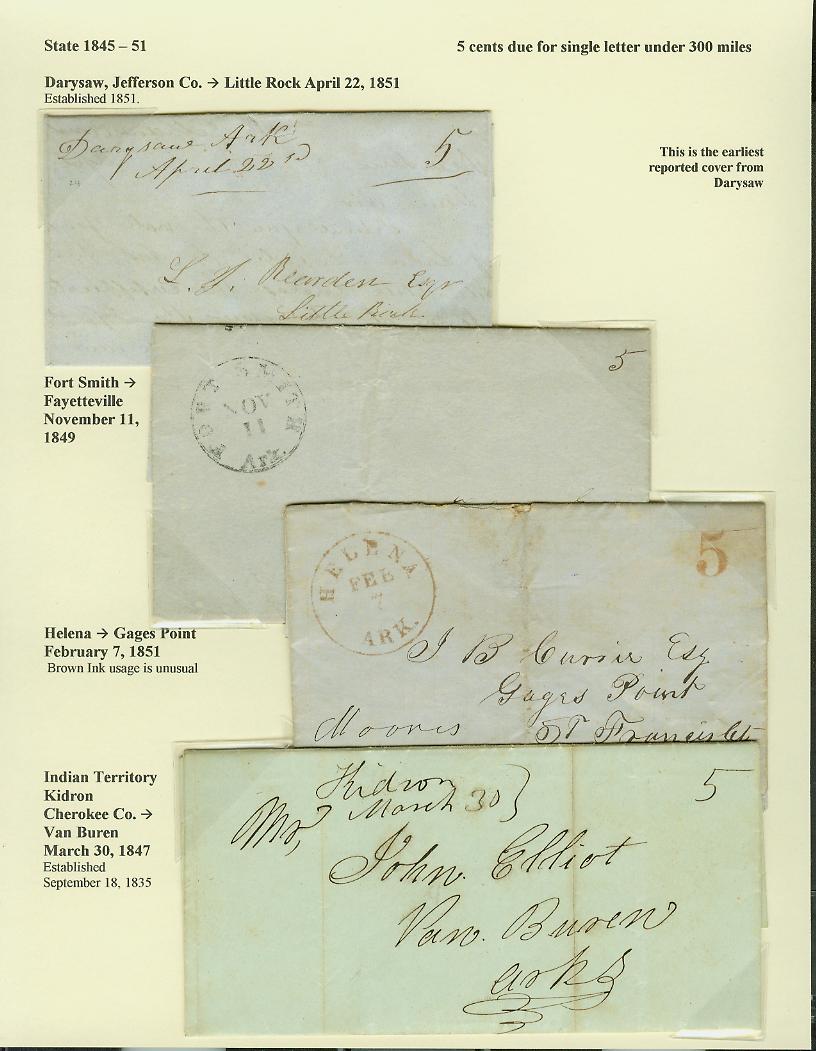 State 1845 – 51
5 cents due for single letter under 300 miles
Darysaw, Jefferson Co. → Little Rock April 22, 1851
Established 1851.
This is the earliest
reported cover from
Darysaw
Darysaw Ark
April 22nd
5
L. J. Rearden Esqr
Little Rock
Fort Smith →
Fayetteville
November 11,
1849
FORT SMITH
NOV
11
Ark.
5
Helena → Gages Point
February 7, 1851
Brown Ink usage is unusual
HELENA
FEB
7
ARK.
5
J B Currie Esq
Gages Point
Moores St Francis Ct
Indian Territory
Kidron
Cherokee Co. →
Van Buren
March 30, 1847
Established
September 18, 1835
Kidron
March 30
5
Mr,
John. Elliot
Van. Buren
arks